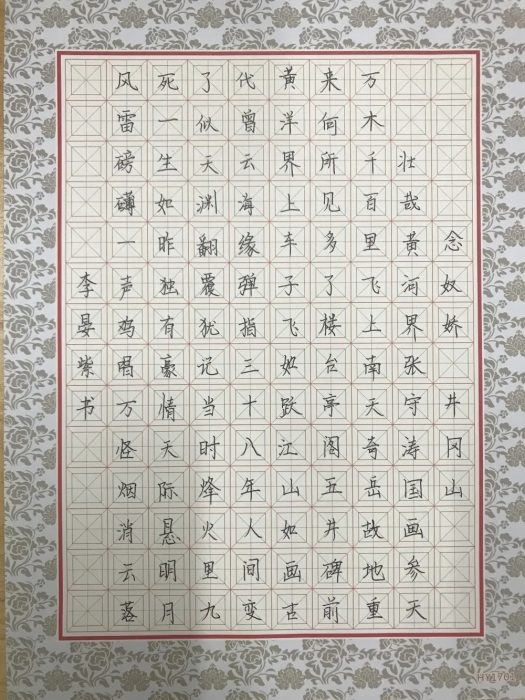 念奴娇 井冈山
壮哉黄河界张守涛国画参天
万木千百里飞上南天奇岳故地重
来何所见多了楼台亭阁五井碑前
黄洋界上车子飞如跃江山如画古
代曾云海缘弹指三十八年人间变
了似天渊翻覆犹记当时烽火里九
死一生如昨独有豪情天际悬明月
风雷磅礴一声鸡唱万怪烟消云落
李晏紫书
HY1701